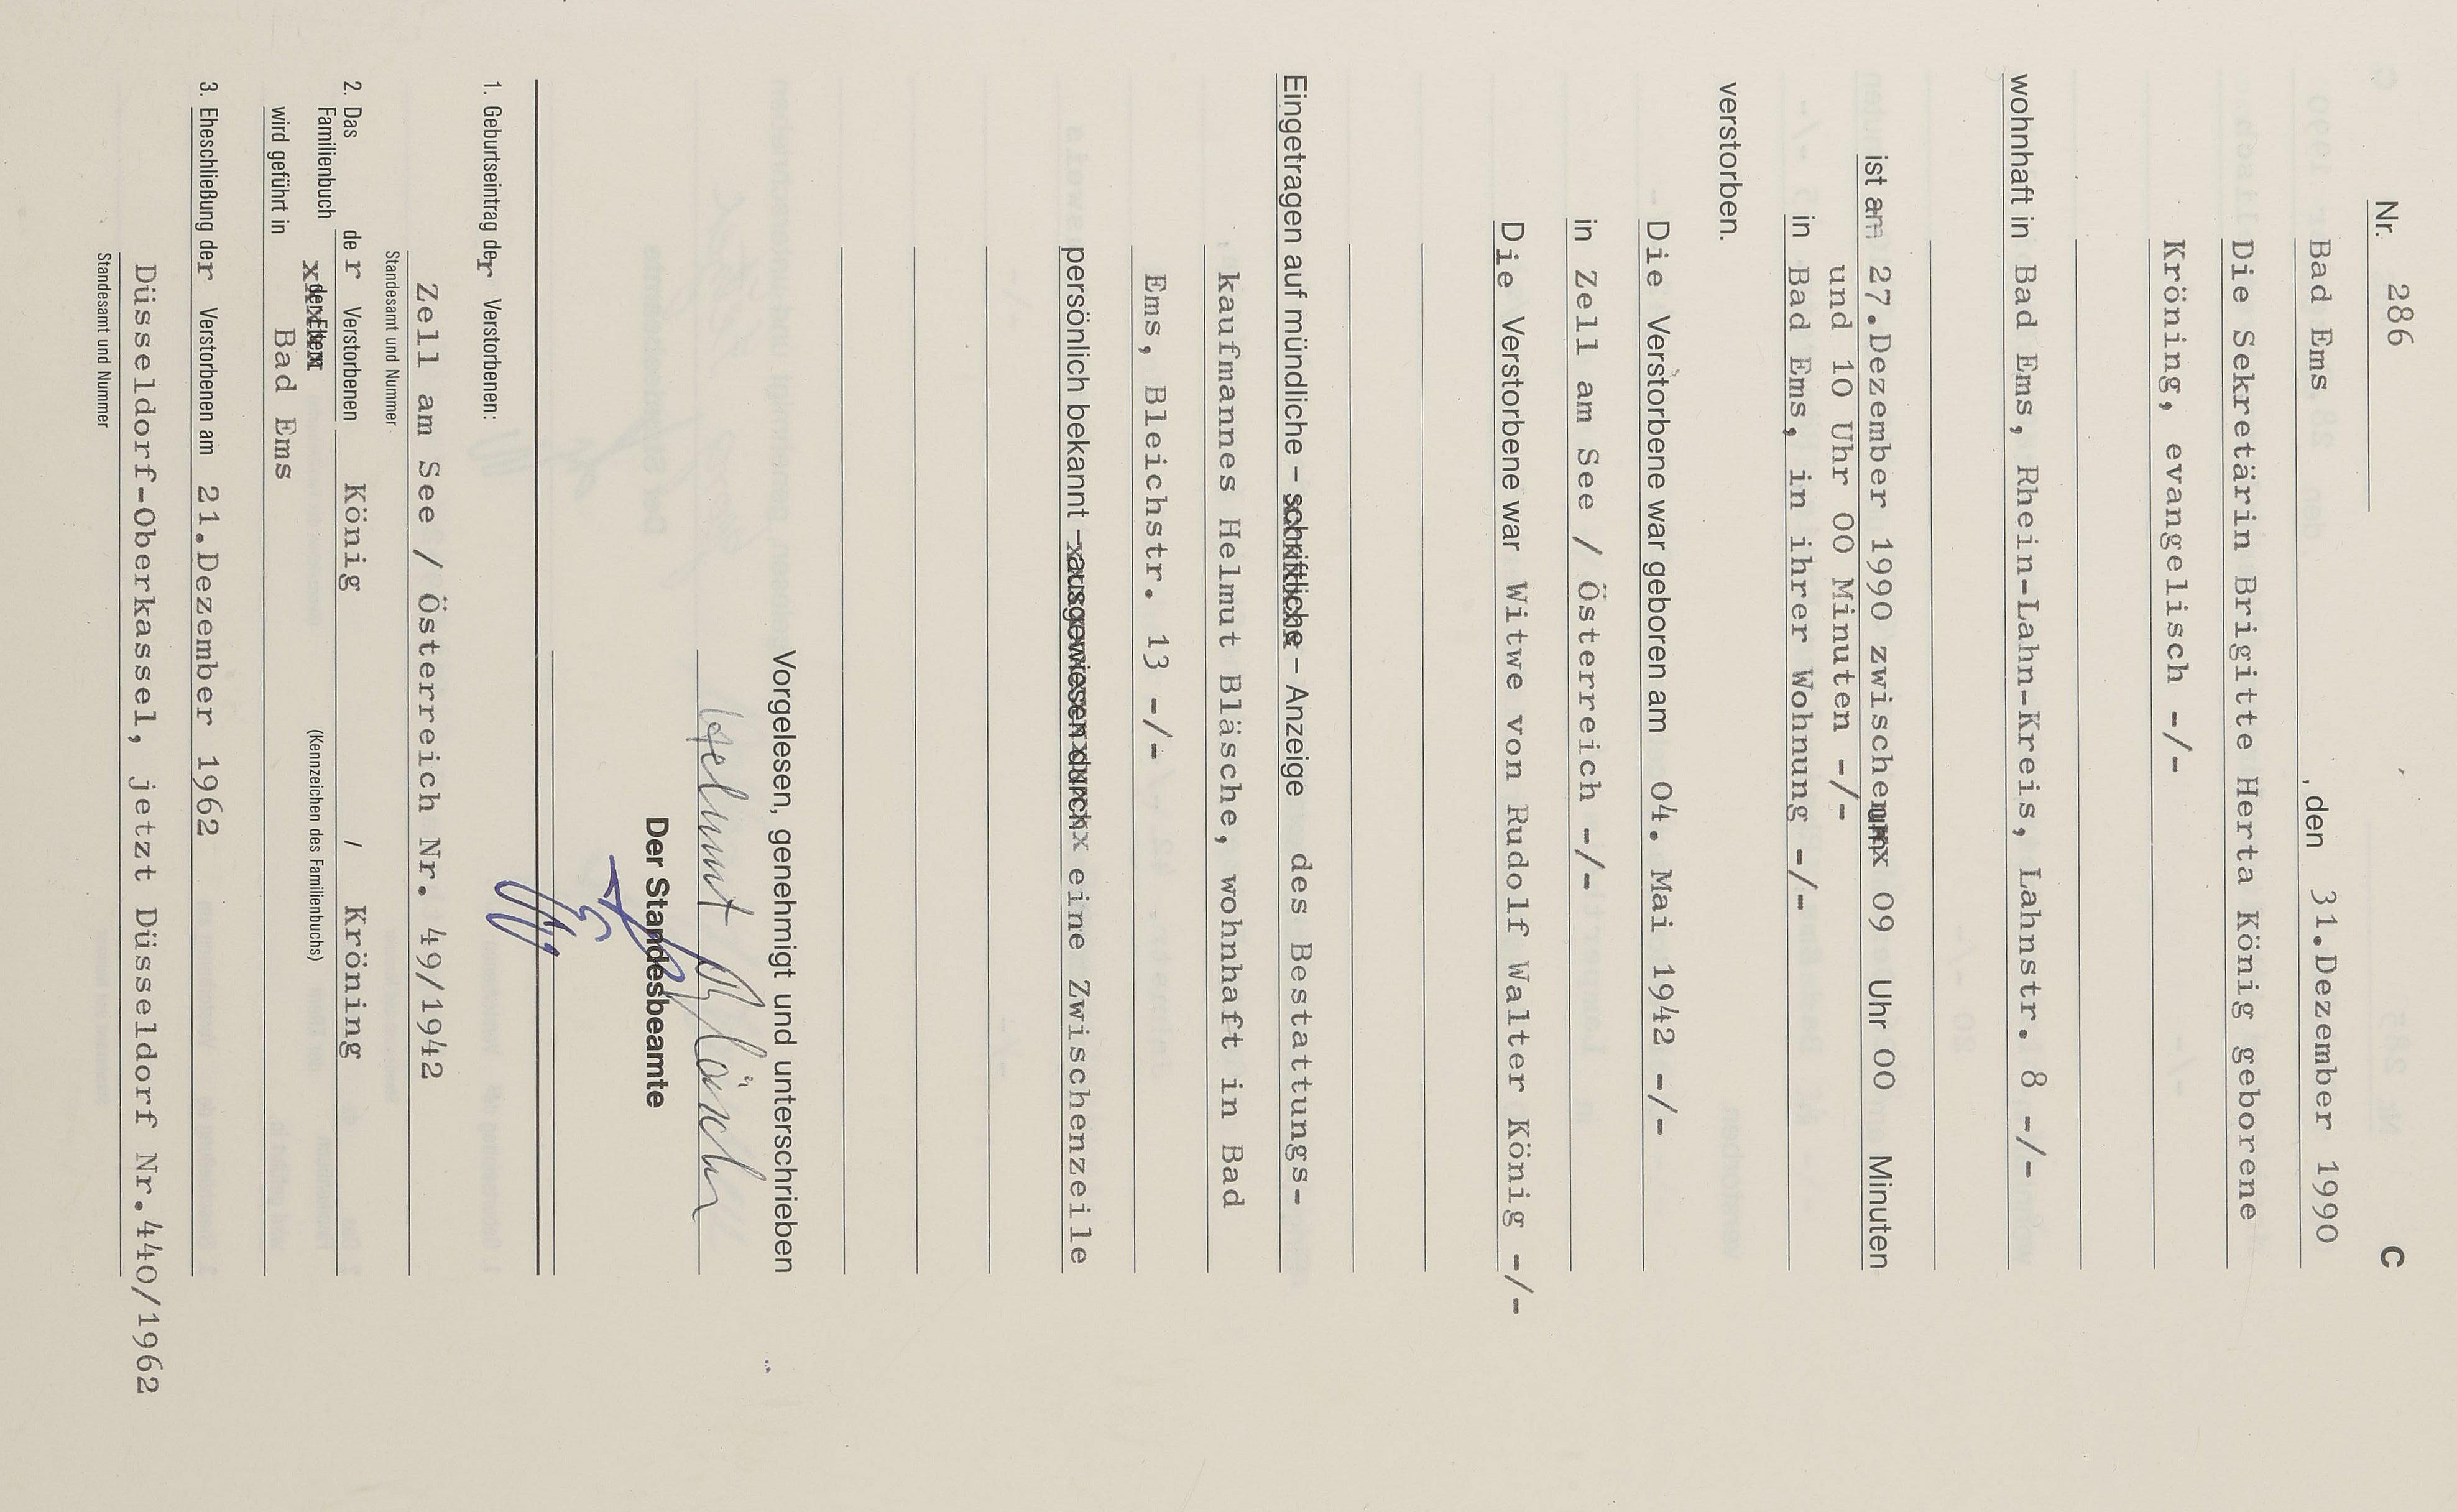 Nr. 286 C
Bad Ems, den 31.Dezember 1990
Die Sekretärin Brigitte Herta König geborene
Kröning, evangelisch -/-
wohnhaft in Bad Ems, Rhein-Lahn-Kreis, Lahnstr. 8 -/-
ist am 27.Dezember 1990 zwischen um 09 Uhr 00 Minuten
und 10 Uhr 00 Minuten -/-
in Bad Ems, in ihrer Wohnung -/-
verstorben.
Die Verstorbene war geboren am 04. Mai 1942 -/-
in Zell am See / Österreich -/-
Die Verstorbene war Witwe von Rudolf Walter König -/-
Eingetragen auf mündliche – schriftliche – Anzeige des Bestattungs-
kaufmannes Helmut Bläsche, wohnhaft in Bad
Ems, Bleichstr. 13 -/-
persönlich bekannt – ausgewiesen durch eine Zwischenzeile
Vorgelesen, genehmigt und unterschrieben
Helmut Bläsche
Der Standesbeamte
1. Geburtseintrag der Verstorbenen:
Zell am See / Österreich Nr. 49/1942
Standesamt und Nummer
2. Das Familienbuch der Verstorbenen König / Kröning
der Eltern (Kennzeichen des Familienbuchs)
wird geführt in Bad Ems
3. Eheschließung der Verstorbenen am 21.Dezember 1962
Düsseldorf-Oberkassel, jetzt Düsseldorf Nr.440/1962
Standesamt und Nummer